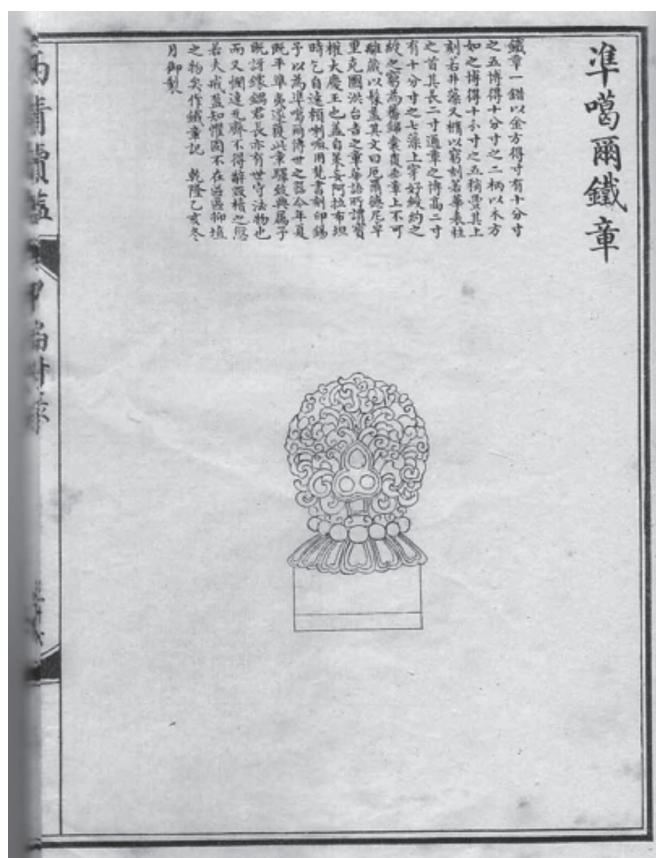 準噶爾鐵章
鐵章一錯以金方得寸有十分寸
之五博得十分寸之二柄以木方
如之博得十分寸之五稍亞其上
刻若井藻又櫕以窮刻若華表柱
之首其長二寸通章之博高二寸
有十分寸之七藻上穿好綬約之
綬之窮為舊錦囊貢壺章上不可
離蔵以髹蓋其文曰厄爾德尼卓
里克圖洪台吉之章華語所謂寶
權大慶王也蓋自策妄阿拉布坦
時乞自達賴喇嘛用梵書刻印錫
予以為準噶爾傳世之器今年夏
既平準夷遂獲此章驛致與屬予
既訝綠鷁君長亦有世守法物也
而又憫達瓦齊不得辭設措之愆
若夫戒盈知懼固不在區區抑埴
之物矣作鐵章記 乾隆乙亥冬
月御製
西清續鑑